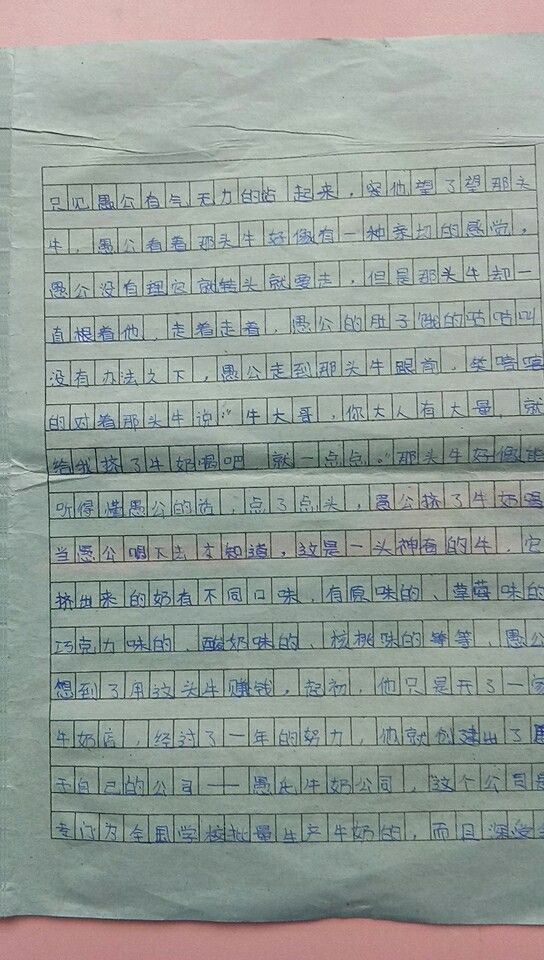 只见愚公有气无力的站起来，突他望了望那头
牛，愚公看着那头牛好像有一种亲切的感觉，
愚公没有理它就转头就要走，但是那头牛却一
直根着他，走着走着，愚公的肚子饿的咕咕叫
没有办法之下，愚公走到那头牛跟前，笑嘻嘻
的对着那头牛说："牛大哥，你大人有大量，就
给我挤了牛奶喝吧，就一点点。"那头牛好像能
听得懂愚公的话，点了点头，愚公挤了牛奶喝
当愚公喝下去才知道，这是一头神奇的牛，它
挤出来的奶有不同口味，有原味的、草莓味的
巧克力味的、酸奶味的、核桃味的等等，愚公
想到了用这头牛赚钱，起初，他只是开了一家
牛奶店，经过了一年的努力，他就创建出了属
于自己的公司——愚氏牛奶公司，这个公司是
专门为全国学校批量生产牛奶的，而且深受